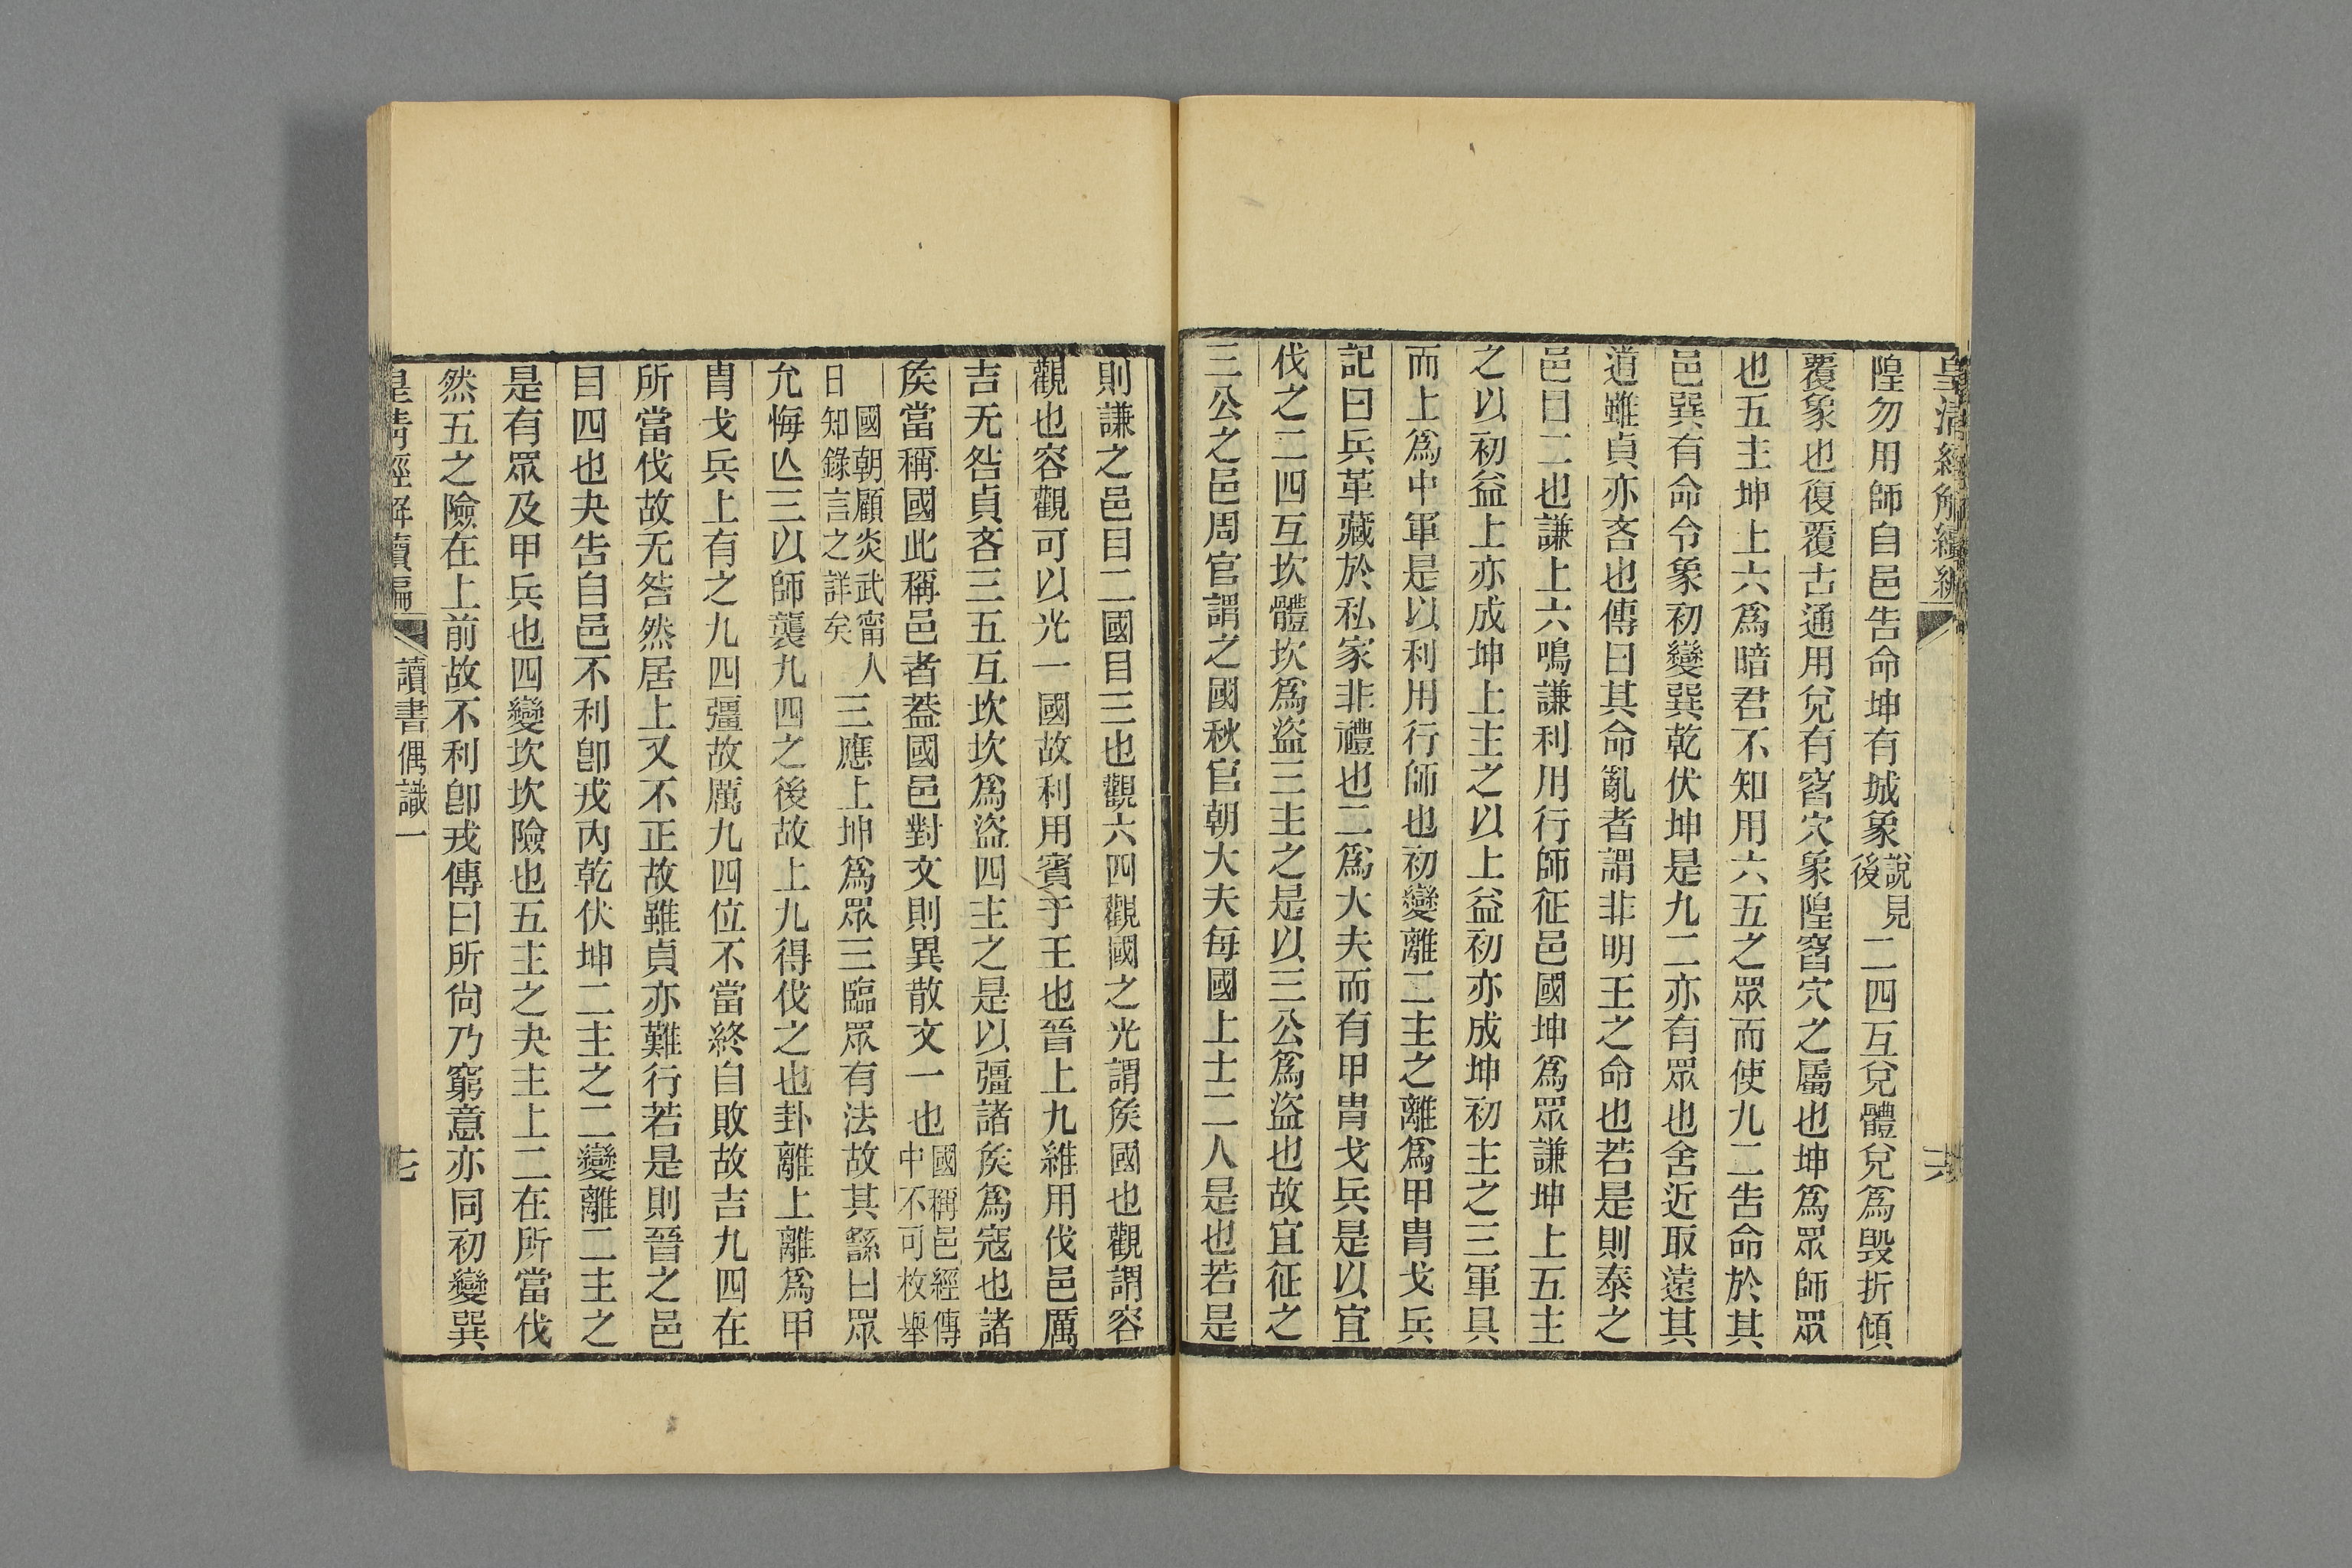 皇清經解續編
十六
隍勿用師自邑告命坤有城象說見後二四互兌體兌爲毀折傾
覆象也復覆古通用兌有窞穴象隍窞穴之屬也坤爲眾師眾
也五主坤上六爲暗君不知用六五之眾而使九二告命於其
邑巽有命令象初變巽乾伏坤是九二亦有眾也舍近取遠其
道雖貞亦吝也傳曰其命亂者謂非明王之命也若是則泰之
邑目二也謙上六鳴謙利用行師征邑國坤爲眾謙坤上五主
之以初益上亦成坤上主之以上益初亦成坤初主之三軍具
而上爲中軍是以利用行師也初變離二主之離爲甲冑戈兵
記曰兵革藏於私家非禮也二爲大夫而有甲冑戈兵是以宜
伐之二四互坎體坎爲盜三主之是以三公爲盜也故宜征之
三公之邑周官謂之國秋官朝大夫每國上士二人是也若是
則謙之邑目二國目三也觀六四觀國之光謂矦國也觀謂容
觀也容觀可以光一國故利用賓于王也晉上九維用伐邑厲
吉无咎貞吝三五互坎坎爲盜四主之是以彊諸矦爲寇也諸
矦當稱國此稱邑者葢國邑對文則異散文一也國稱邑經傳中不可枚舉
國朝顧炎武甯人日知錄言之詳矣三應上坤爲眾三臨眾有法故其繇曰眾
允悔亾三以師襲九四之後故上九得伐之也卦離上離爲甲
冑戈兵上有之九四彊故厲九四位不當終自敗故吉九四在
所當伐故无咎然居上又不正故雖貞亦難行若是則晉之邑
目四也夬告自邑不利卽戎內乾伏坤二主之二變離二主之
是有眾及甲兵也四變坎坎險也五主之夬主上二在所當伐
然五之險在上前故不利卽戎傳曰所尙乃窮意亦同初變巽
皇清經解續編
讀書偶識一
十七